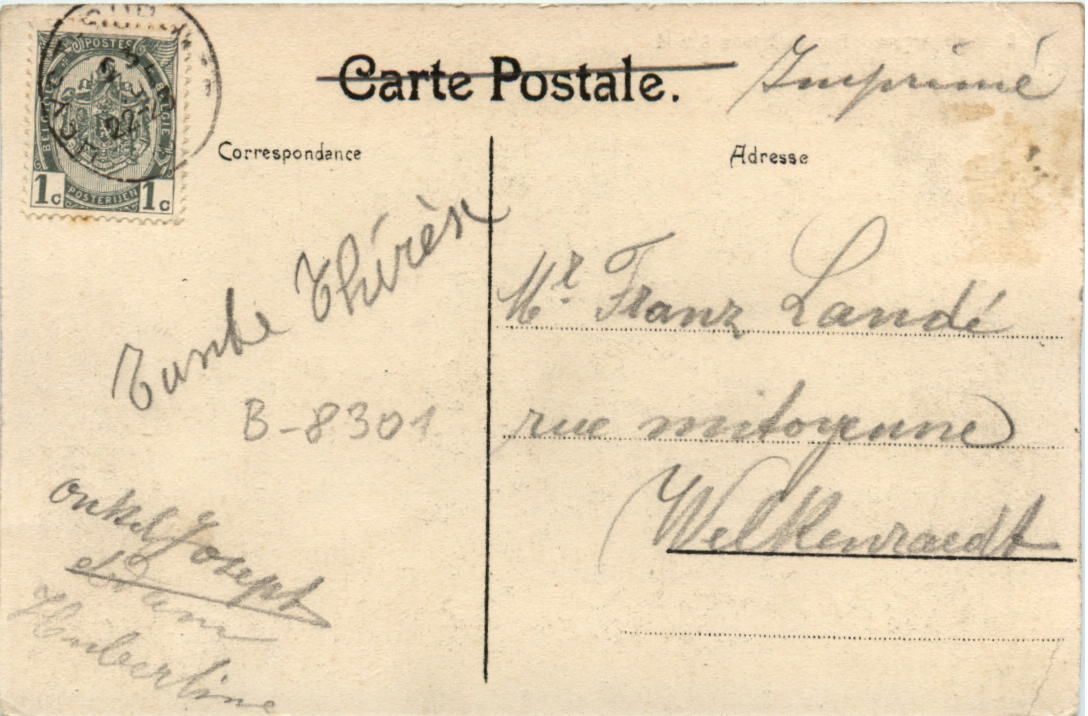 Carte Postale.
Imprimé
POSTES
BELGIQUE
BELGIË
1c 1c
POSTERIJEN
Correspondance
Adresse
Tante Thérèse
B-8301
onkel Joseph
Hubertine
Mr Franz Landé
rue mitoyenne
Welkenraedt